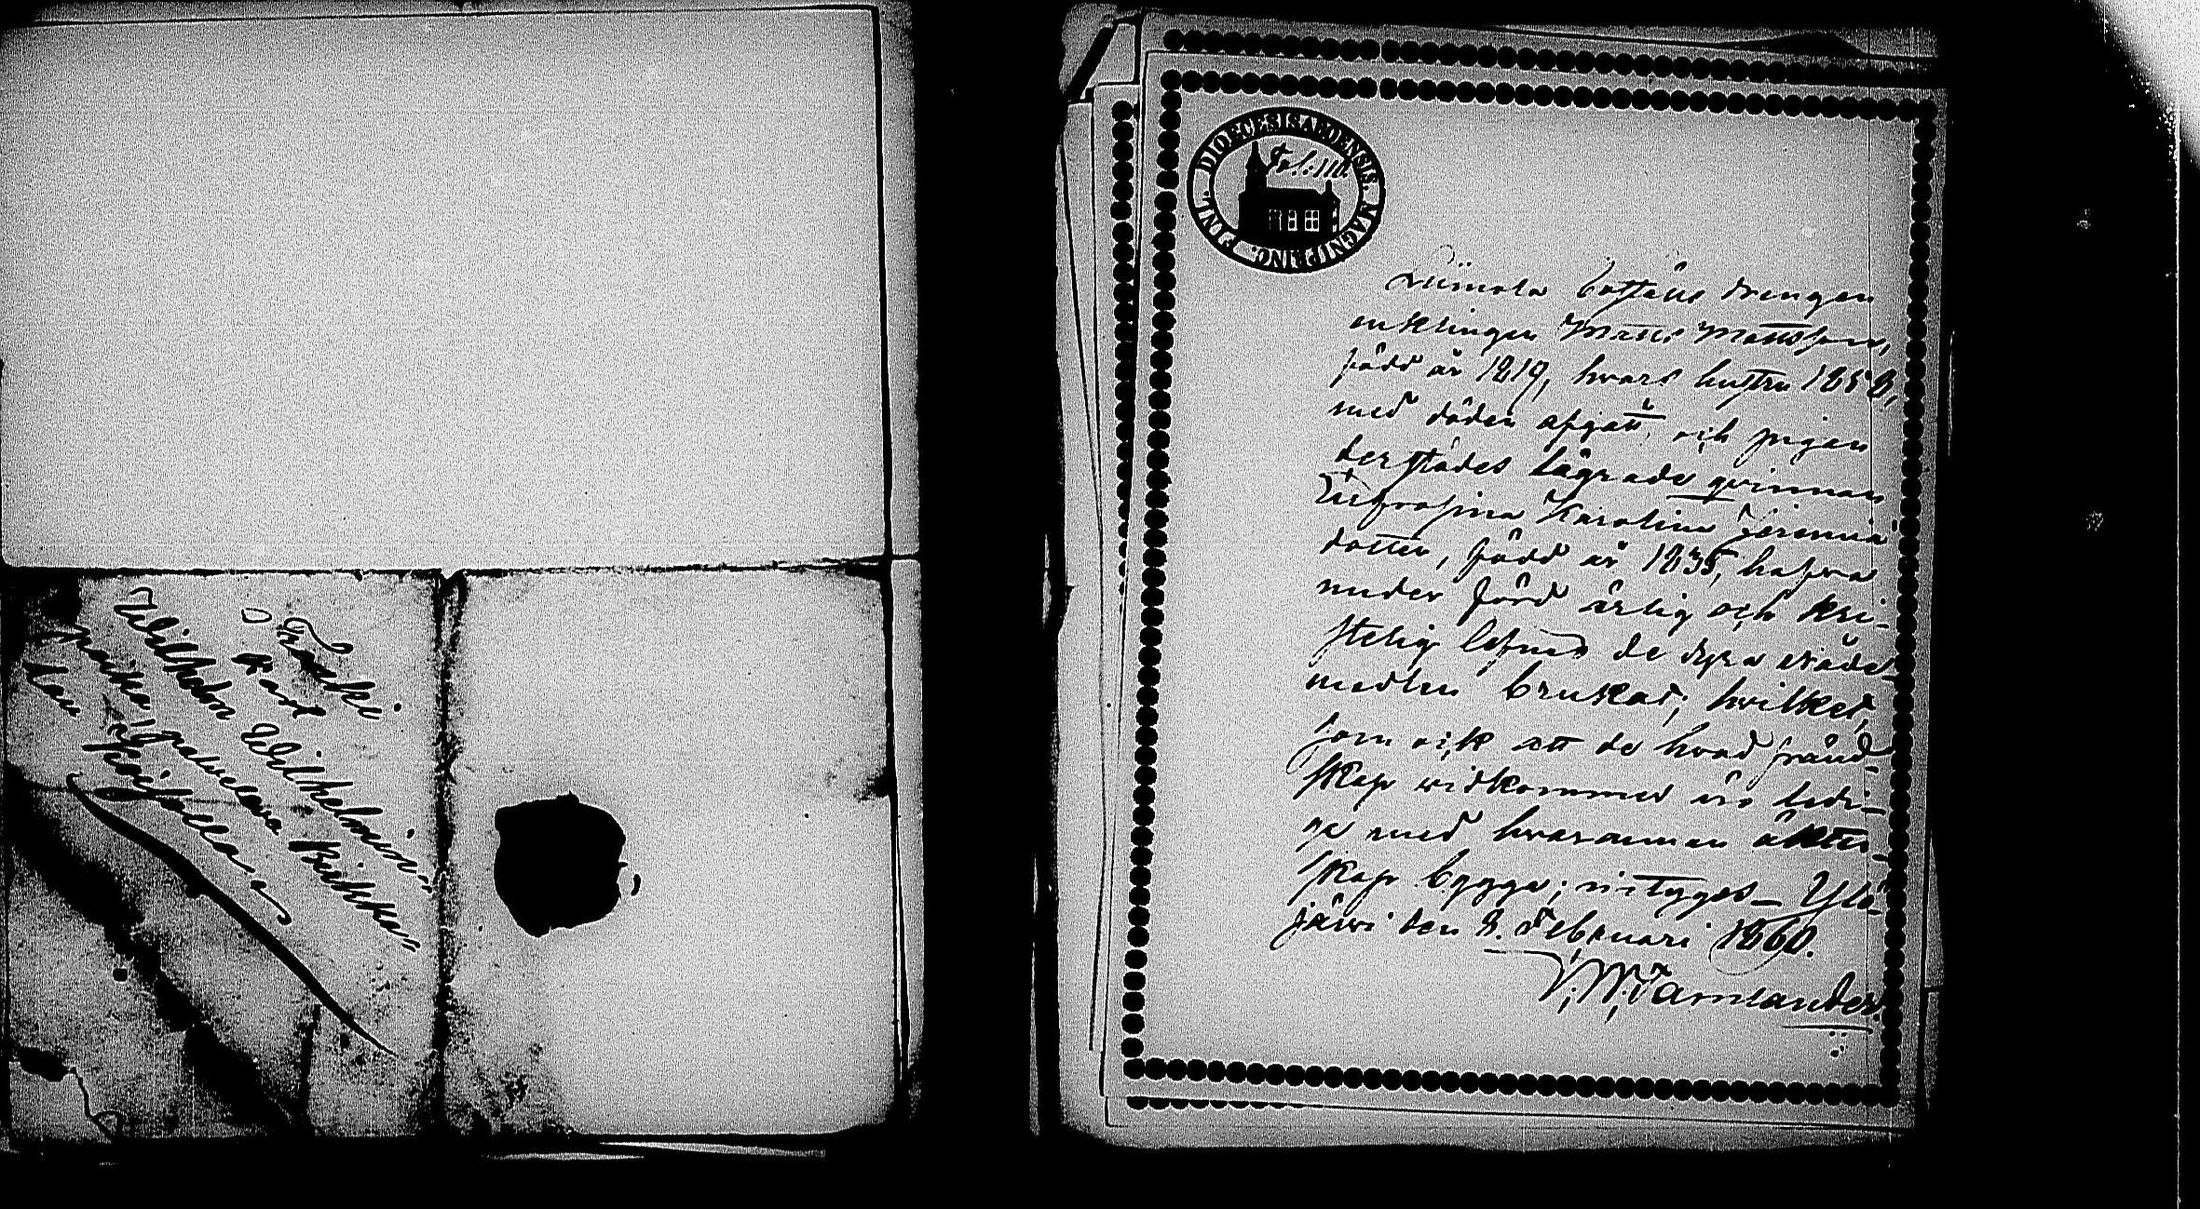 Wilhelm Wilhelmin
poika palvelava
DIOECESIS ABOENSIS. MAGNI PRINC. FINL.
Fol: 110.
Liimola boställs drengen
enklingen Matts Mattsson,
född år 1819, hvars hustru 1858,
med döden afgått, och pigan
derstädes lägrade qvinnan
Eufrosina Karolina Jeremiä
dotter, född år 1835, hafva
under förd ärlig och kri-
stelig lefnad de dyra nåde-
medlen brukat; hvilket,
som ock att de hvad fränd-
skap vidkommer äro ledi-
ga med hvarannan äkten-
skap bygga; intygas_ Ylö-
järvi den 8. Februari 1860.